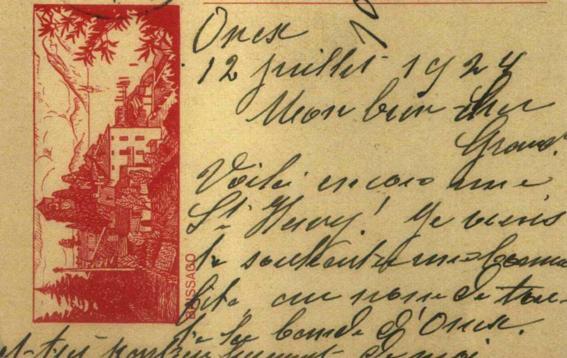 Onex
12 juillet 1924
Mon bien cher
Grand.
Voilà encore une
St Henry! Je viens
te souhaiter une bonne
fête au nom de tou-
te la bande d'Onex.
BRISSAGO
et